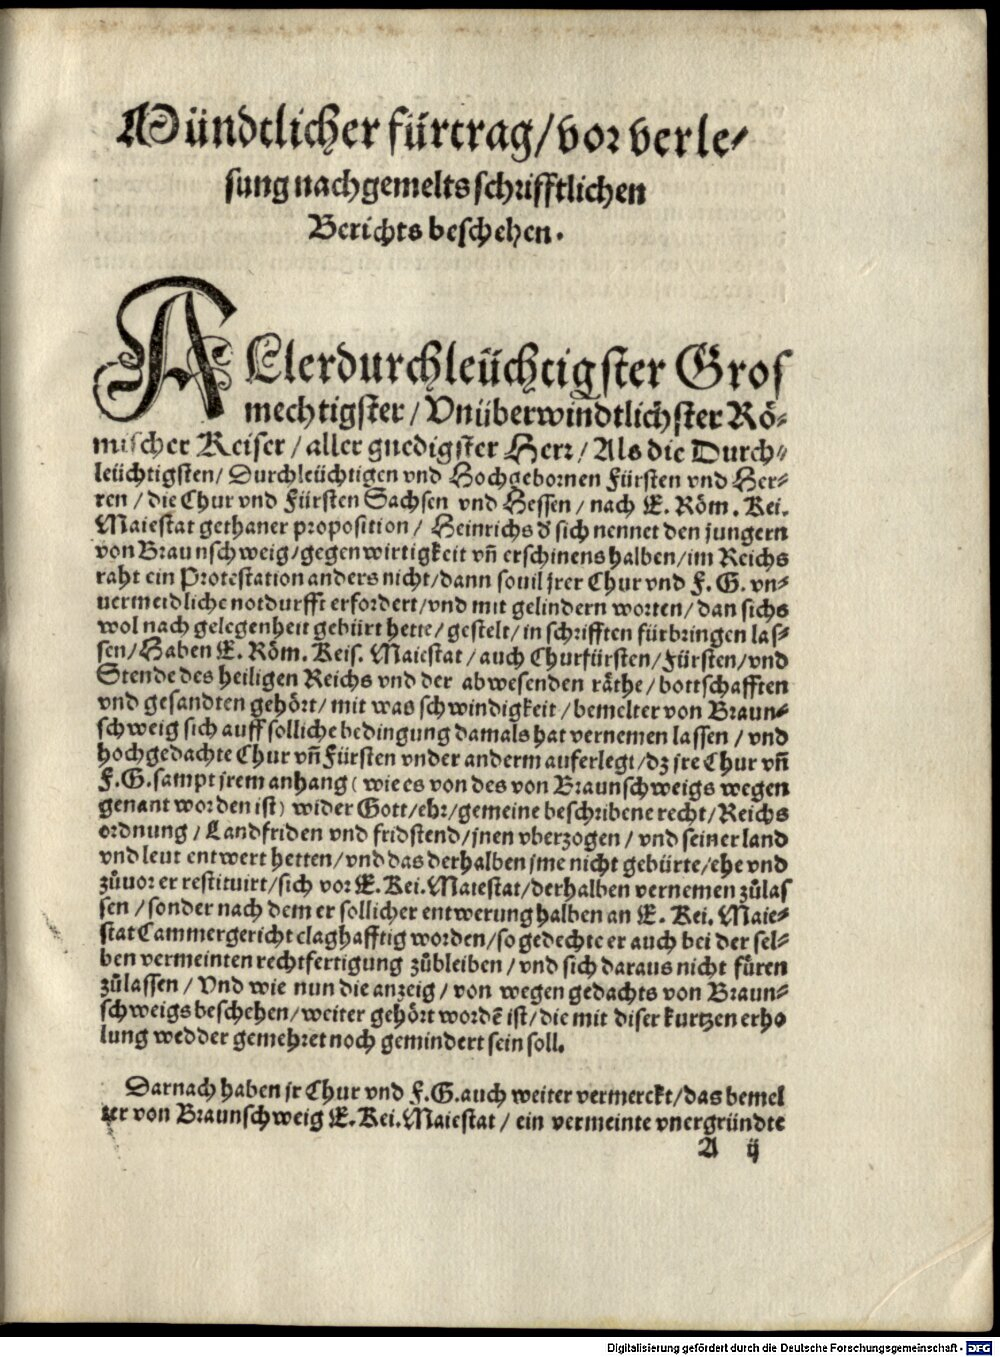 Mündtlicher fürtrag/vor verle-
sung nachgemelts schrifftlichen
Berichts beschehen.
ALlerdurchleüchtigster Gros
mechtigster/Vnüberwindtlichster Rö-
mischer Keiser/aller gnedigster Herr/Als die Durch-
leüchtigsten/Durchleüchtigen vnd Hochgebornen Fürsten vnd Her-
ren/die Chur vnd Fürsten Sachsen vnd Hessen/nach E. Röm. Kei.
Maiestat gethaner proposition/Heinrichs d̕ sich nennet den jungern
von Braunschweig/gegenwirtigkeit vn̄ erschinens halben/im Reichs
raht ein Protestation anders nicht/dann souil jrer Chur vnd F.G. vn-
uermeidliche notdurfft erfordert/vnd mit gelindern worten/dan sichs
wol nach gelegenheit gebürt hette/gestelt/in schrifften fürbringen las-
sen/Haben E. Röm. Keis. Maiestat/auch Churfürsten/Fürsten/vnd
Stende des heiligen Reichs vnd der abwesenden räthe/bottschafften
vnd gesandten gehört/mit was schwindigkeit/bemelter von Braun-
schweig sich auff solliche bedingung damals hat vernemen lassen/vnd
hochgedachte Chur vn̄ Fürsten vnder anderm auferlegt/dz jre Chur vn̄
F.G. sampt jrem anhang (wie es von des von Braunschweigs wegen
genant worden ist) wider Gott/ehr/gemeine beschribene recht/Reichs
ordnung/Landfriden vnd fridstend/jnen vberzogen/vnd seiner land
vnd leut entwert hetten/vnd das derhalben jme nicht gebürte/ehe vnd
zůuor er restituirt/sich vor E. Kei. Maiestat/derhalben vernemen zůlas
sen/sonder nach dem er sollicher entwerung halben an E. Kei. Maie-
stat Cammergericht claghafftig worden/so gedechte er auch bei der sel-
ben vermeinten rechtfertigung zůbleiben/vnd sich daraus nicht füren
zůlassen/Vnd wie nun die anzeig/von wegen gedachts von Braun-
schweigs beschehen/weiter gehört wordē ist/die mit diser kurtzen erho
lung wedder gemehret noch gemindert sein soll.
Darnach haben jr Chur vnd F.G. auch weiter vermerckt/das bemel
ter von Braunschweig E. Kei. Maiestat/ein vermeinte vnergründte
A ij
Digitalisierung gefördert durch die Deutsche Forschungsgemeinschaft - DFG